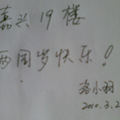 嘉兴19楼
两周岁快乐!
2010.3.2